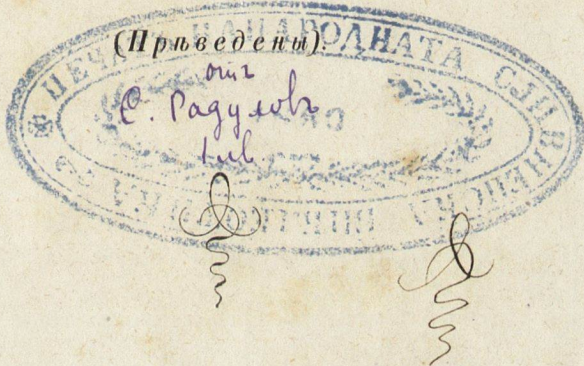 (Прѣведены).
отъ
С. Радуловъ
ПЕЧАТ НАНАРОДНАТА СЛИВНЕНСКА БИБЛИОТЕКА